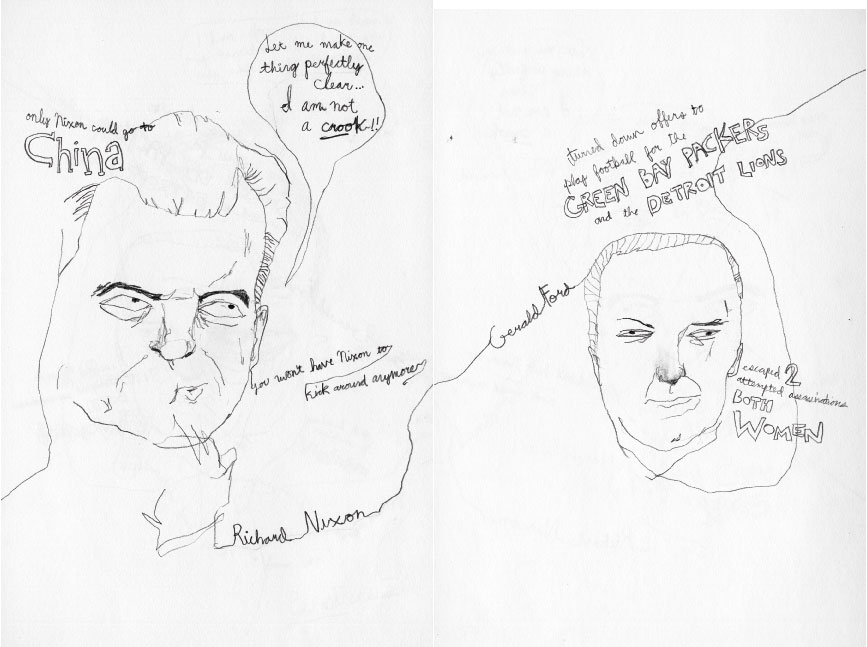 only Nixon could go to
China
Let me make one
thing perfectly
clear...
I am not
a crook..!!
you won't have Nixon to
kick around anymore
Richard Nixon
turned down offers to
play football for the
GREEN BAY PACKERS
and the DETROIT LIONS
Gerald Ford
escaped 2
attempted assasinations
BOTH
WOMEN